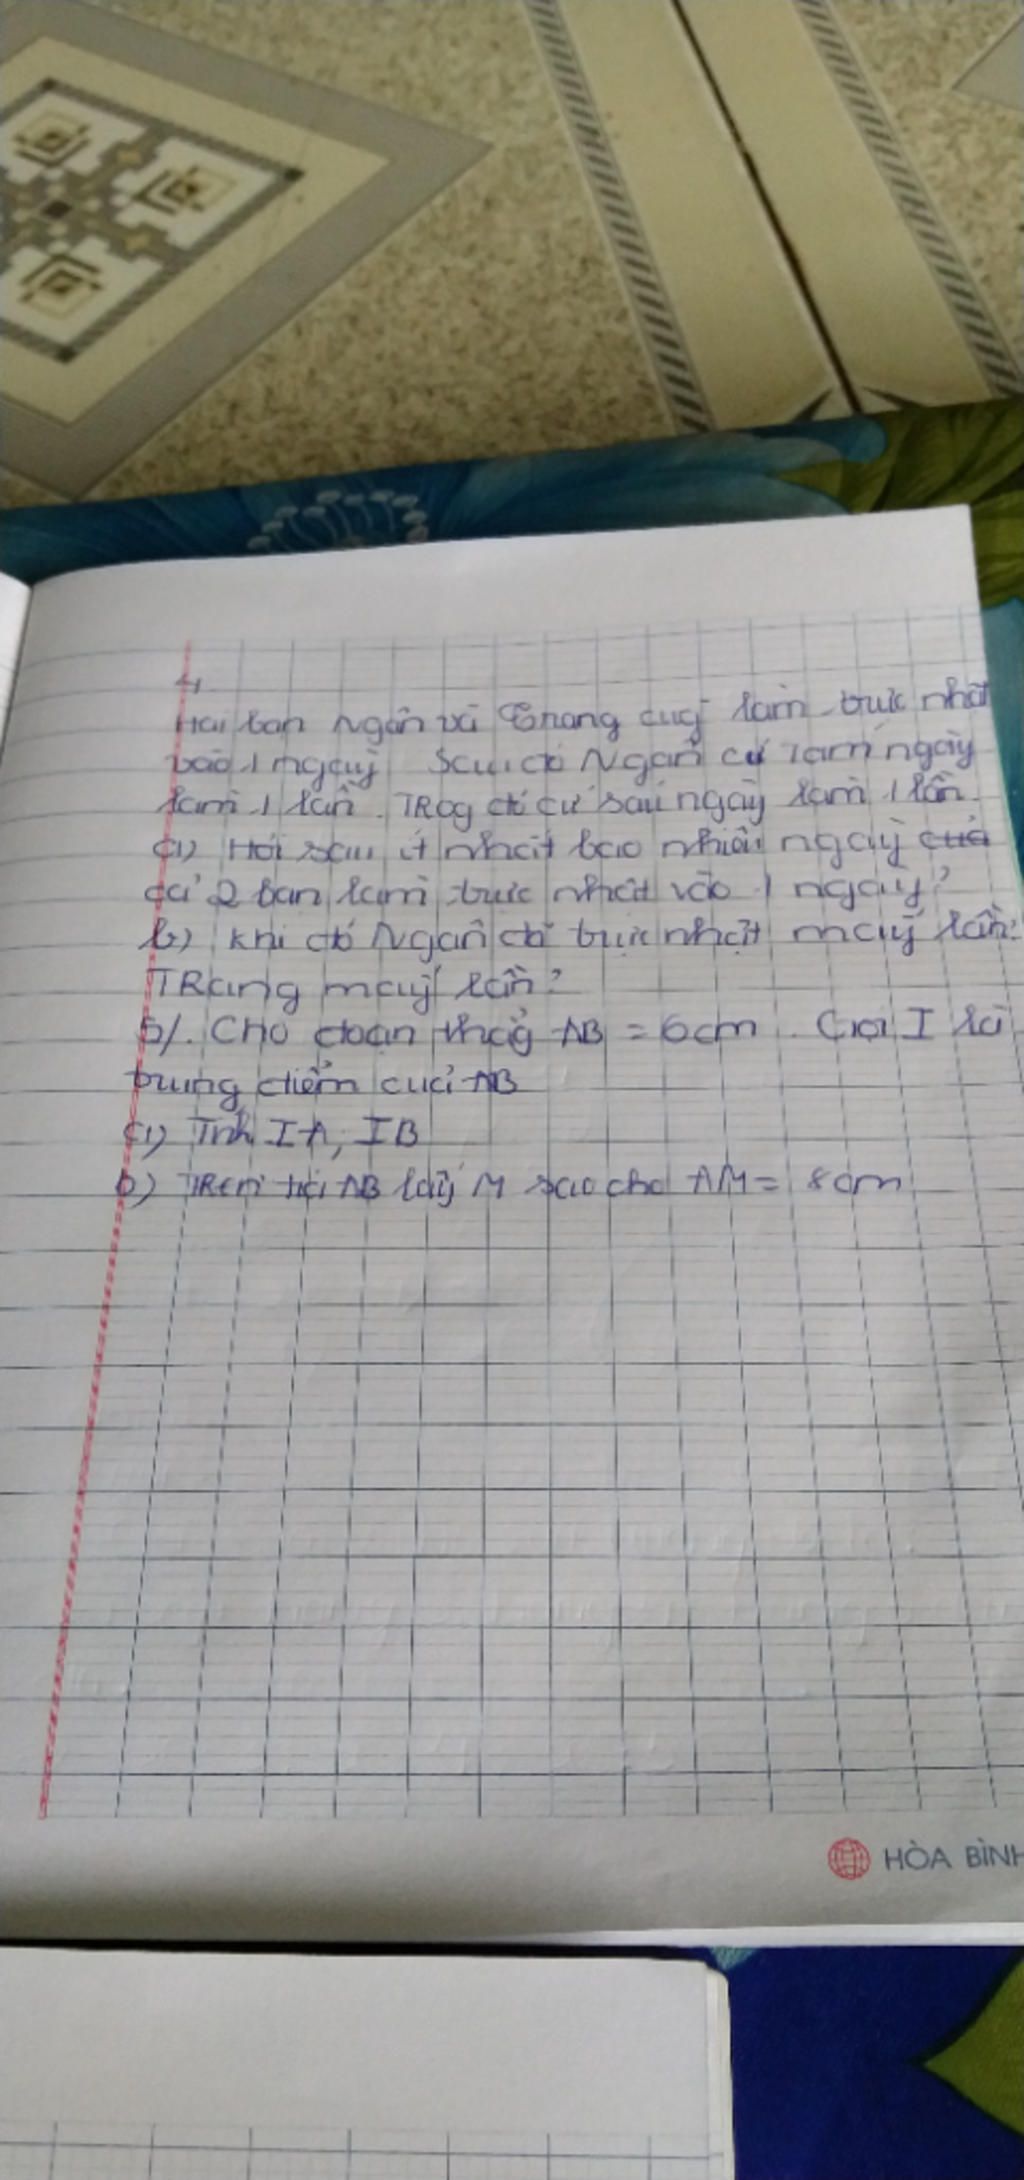 4
Hai bạn Ngân và Trang cùg làm trực nhật
vào 1 ngày Sau đó Ngân cứ Tám ngày
làm 1 lần. TRag thì cứ sáu ngày làm 1 lần.
a) Hỏi sau ít nhất bao nhiêu ngày
cả 2 bạn làm trực nhật vào 1 ngày?
b) Khi đó Ngân đã trực nhật mấy lần?
TRang mấy lần?
5/. Cho đoạn thẳg AB = 6cm. Gọi I là
trung điểm của AB
a) Tính IA; IB
b) TRên tia AB lấy M sao cho AM = 8cm
HÒA BÌNH